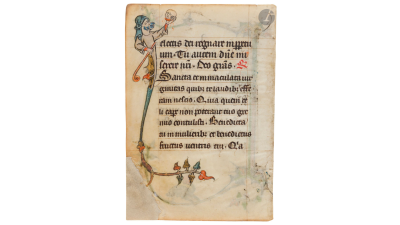 electis dei regnare inppetu
um. Tu autem dn̄e mi
serere nr̄i. Deo grās.
Sancta et immaculata uir
ginitas quibꝫ te laudibꝫ effe
ram nescio. Quia quem ce
li capere non poterant tuo gre
mio contulisti. Benedicta
tu in mulieribꝫ et benedictus
fructus uentris tui. Qia